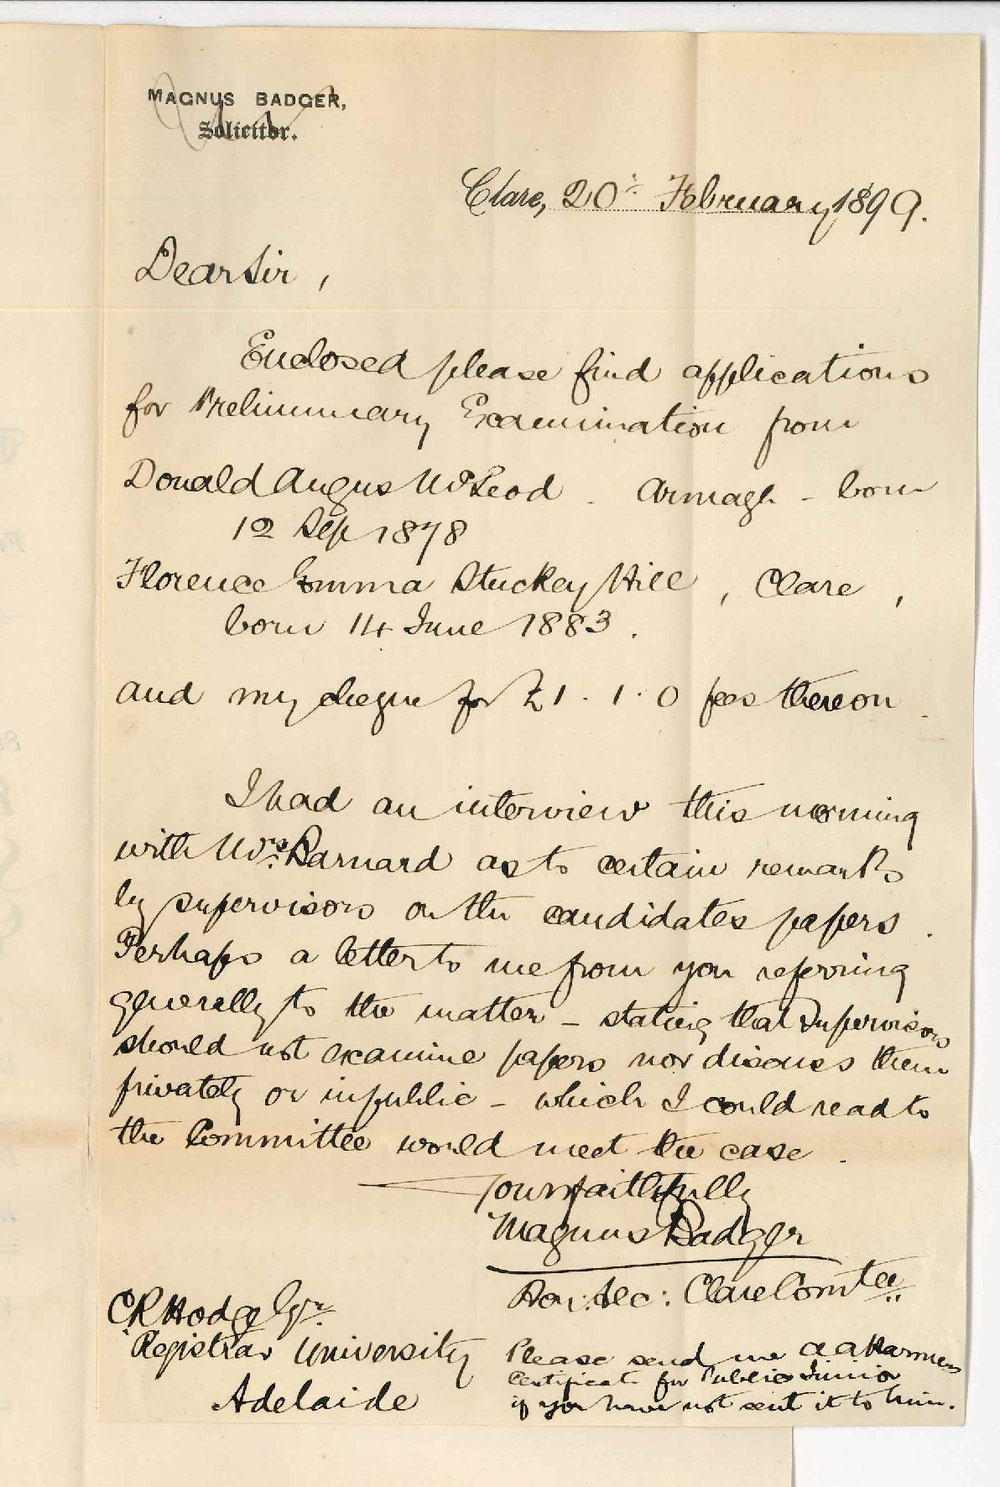 MAGNUS BADGER,
Solicitor.
Clare, 20th February 1899.
Dear Sir,
Enclosed please find applications
for Preliminary Examination from
Donald Angus McLeod - Armagh - born
12 Sep 1878
Florence Emma Stuckey Hill, Clare,
born 14 June 1883.
and my cheque for £1.1.0 fees thereon.
I had an interview this morning
with Mrs. Barnard as to certain remarks
by supervisors on the candidates papers.
Perhaps a letter to me from you referring
generally to the matter - stating that Supervisors
should not examine papers nor discuss them
privately or in public - which I could read to
the Committee would meet the case.
Yours faithfully
Magnus Badger
Hon: Sec: Clare Comtee.
C R Hodge Esqr
Registrar University
Adelaide
Please send me
Certificate for Public Junior
if you have not sent it to him.